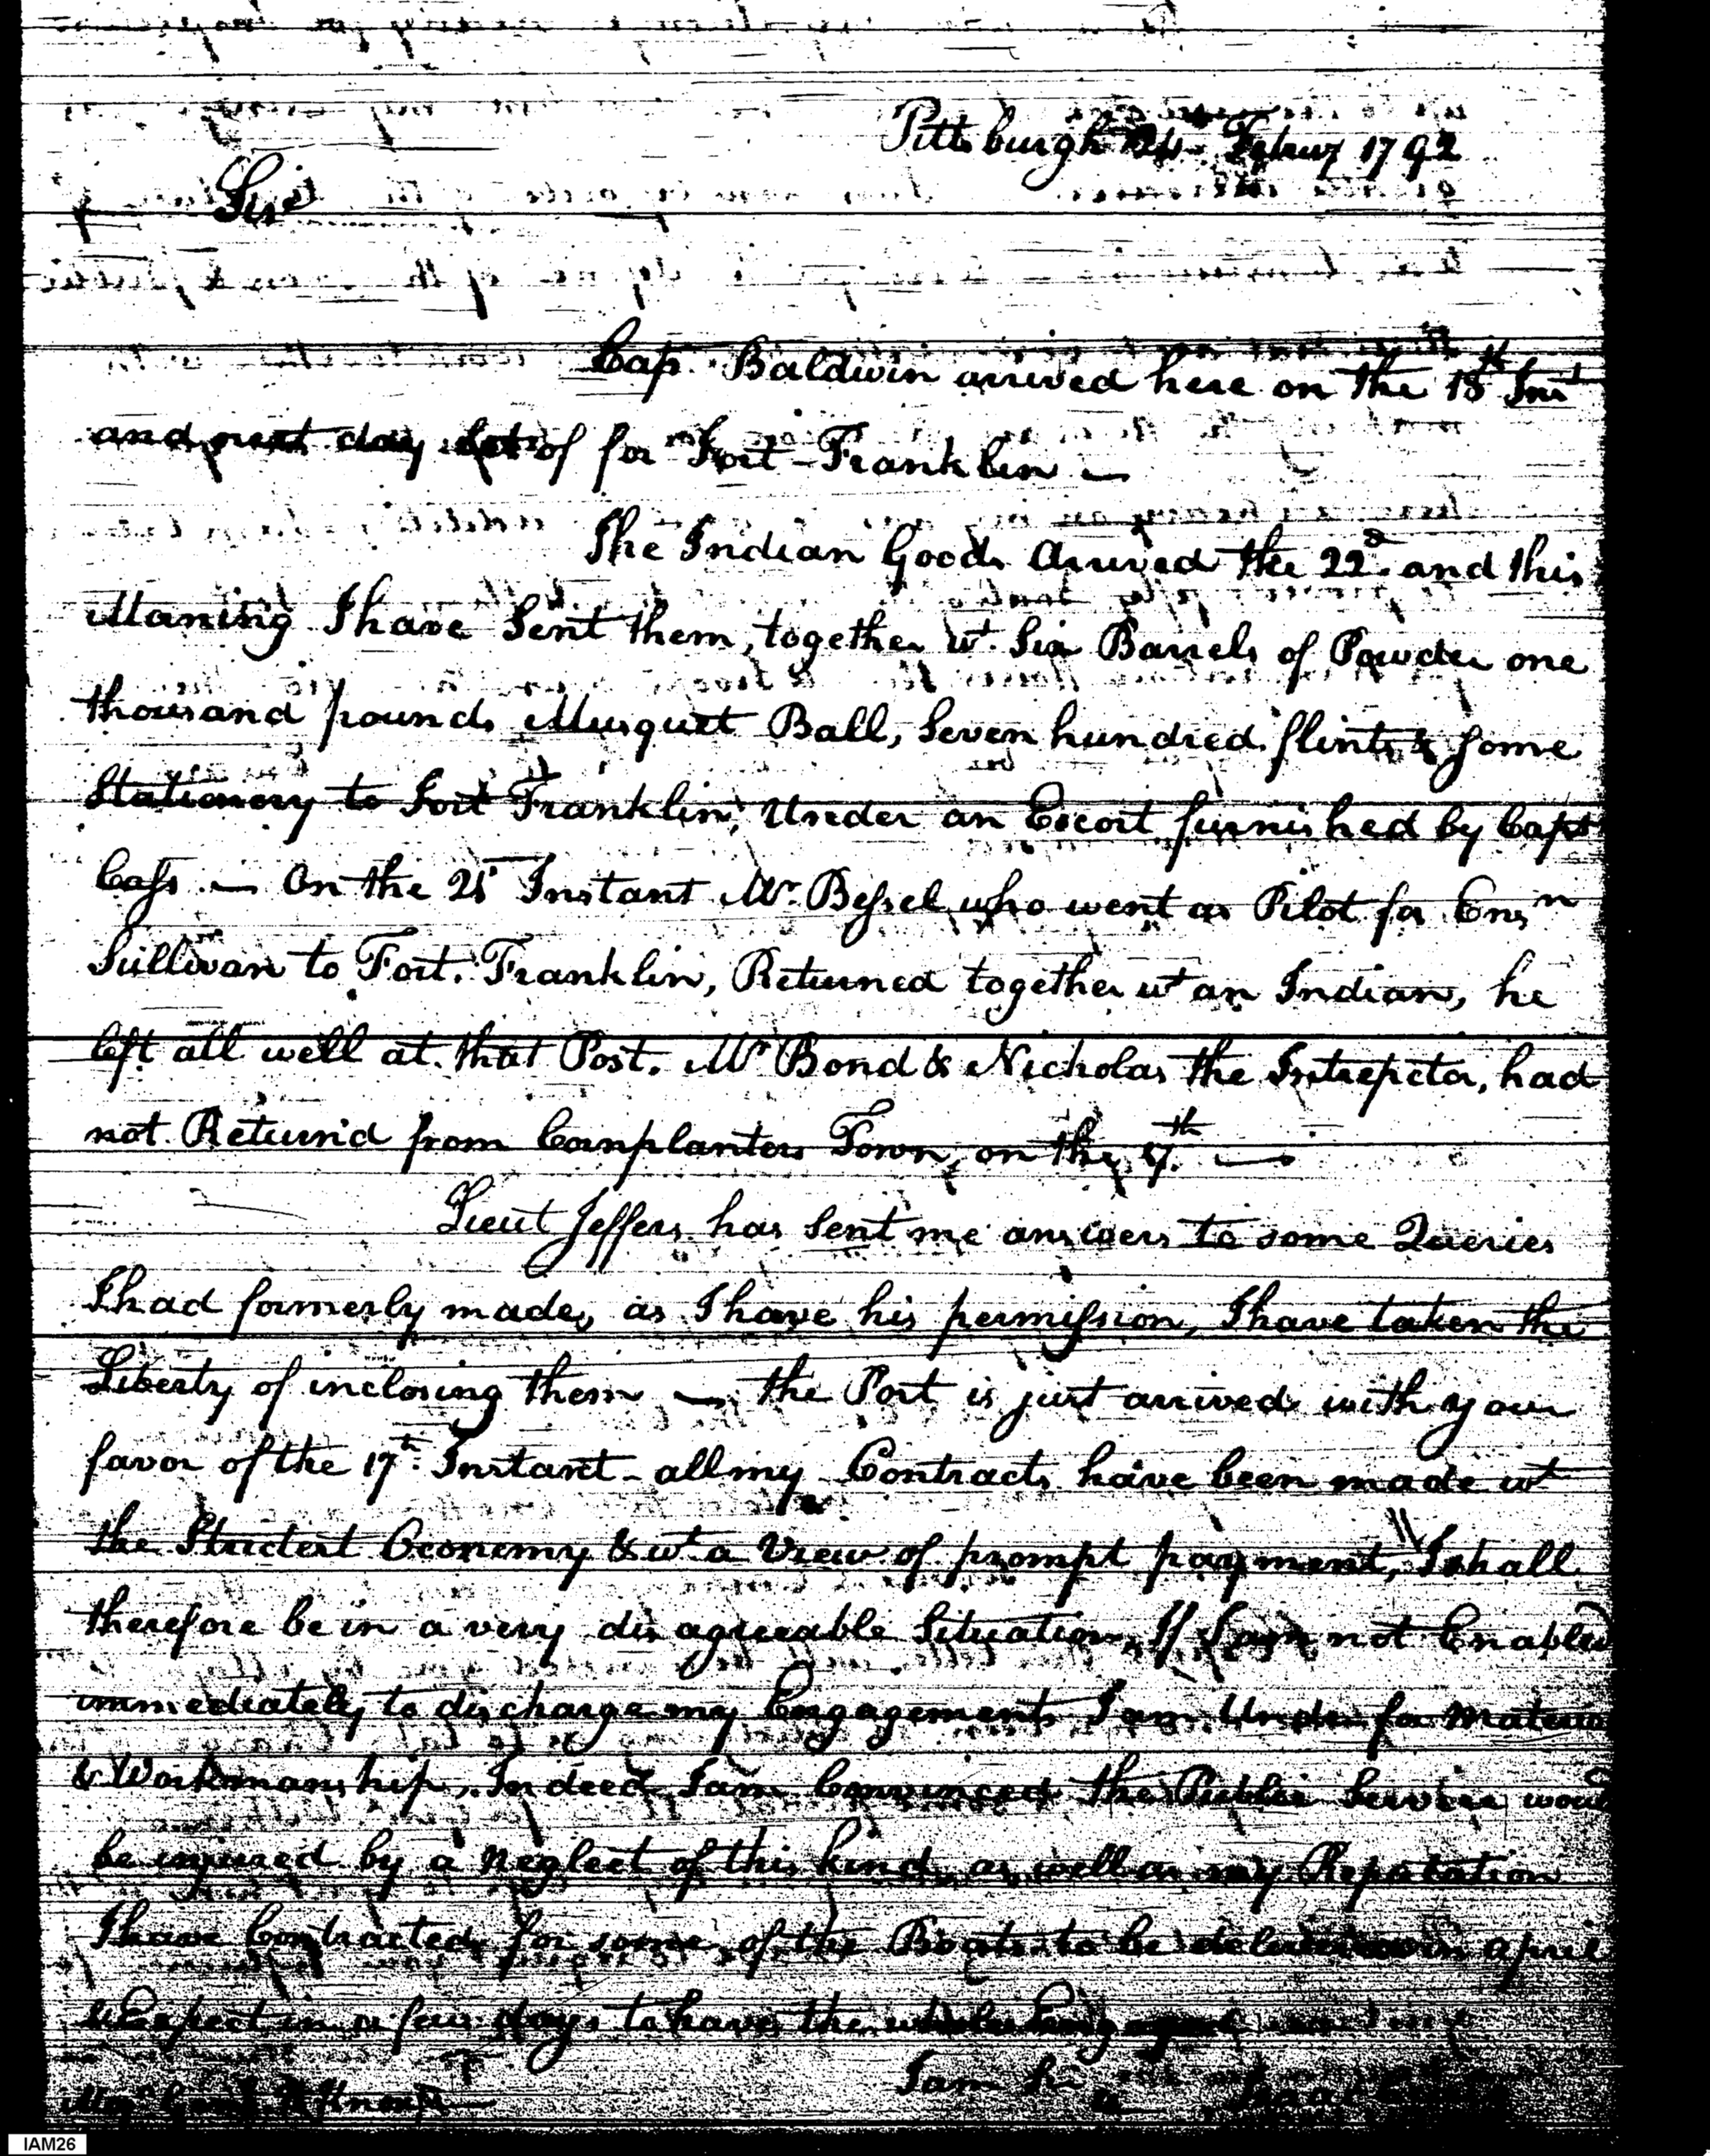 Pittsburgh 24 Febuy 1792
Sir
Cap. Baldwin arrived here on the 18th Inst
and next day set of for Fort-Franklin —
The Indian Goods Arrived the 22d. and this
Morning I have Sent them, together wt. Six Barrels of Powder one
thousand pounds Musquet Ball, Seven hundred flints & some
Stationory to Fort Franklin, Under an Escort furnished by Capt
Cass. — On the 21 Instant Mr. Bessel who went as Pilot for Ensn
Sullivan to Fort. Franklin, Returned together wt an Indian, he
left all well at that Post. Mr Bond & Nicholas the Intrepter, had
not Return'd from Cornplanters Town, on the 17th —
Lieut Jeffers has Sent me answers to some Queries
I had formerly made, as I have his permission, I have taken the
Liberty of inclosing them — the Post is just arrived with your
favor of the 17th. Instant - all my Contracts have been made wt
the Strictest Oconemy & wt a View of prompt payment, I shall
therefore be in a very disagreeable Situation, If I am not Enabled
immediately to discharge my Engagements I am Under for Material
& Workmanship. Indeed I am Convinced the Public Service would
be injured by a Neglect of this kind, as well as my Reputation
I have Contracted for some of the Boats to be delivered in april
& Expect in a few days to have the whole Engaged
I am Sir Isaac Craig
Majr Genl H Knox
IAM26